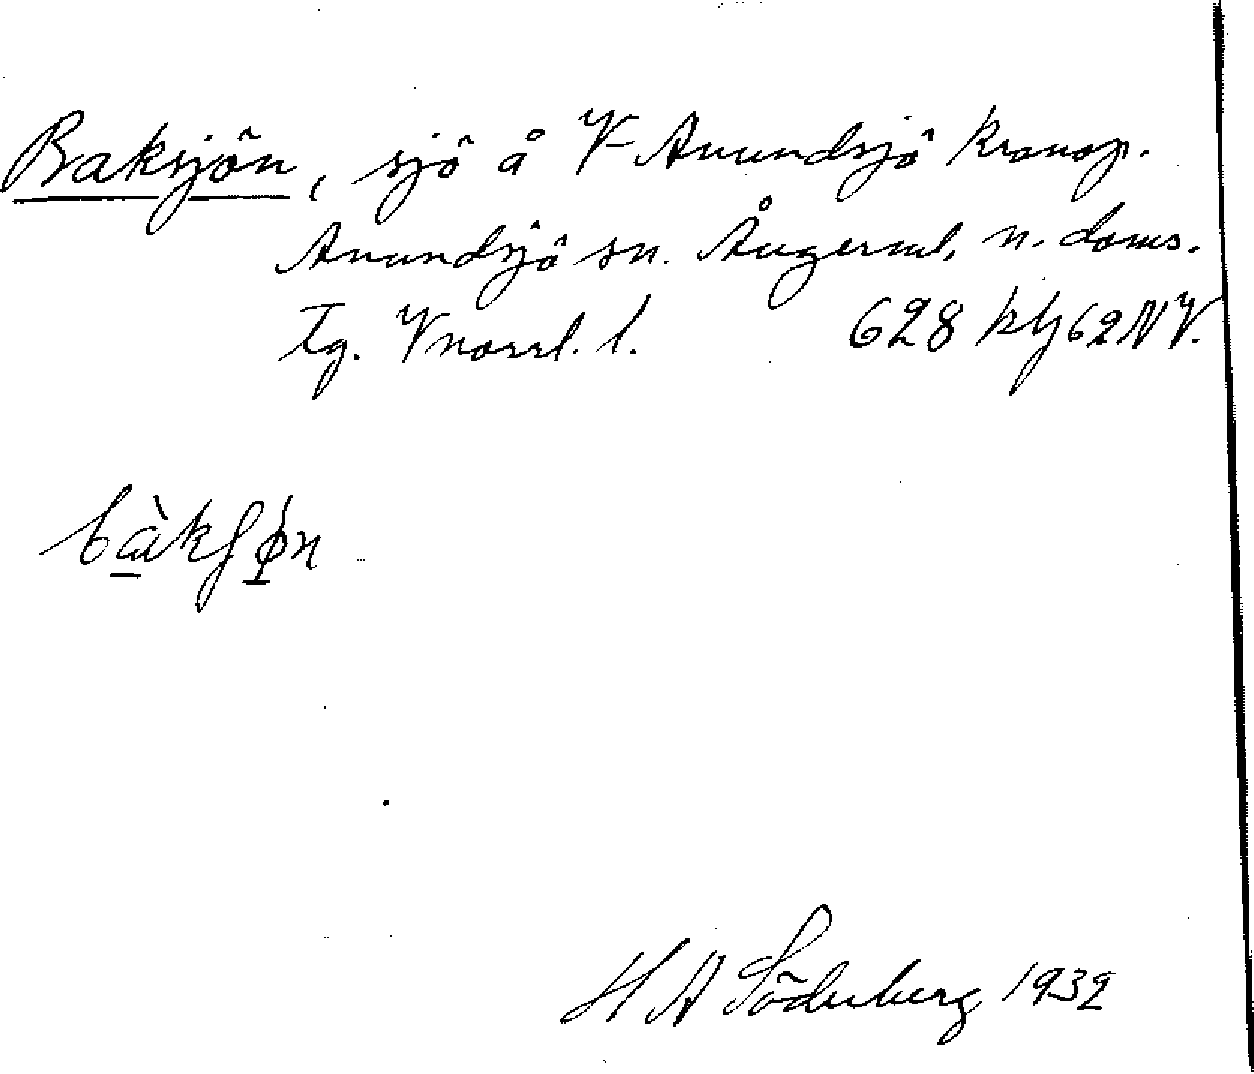 Baksjön, sjö å V Anundsjö kronop.
Anundsjö sn. Ångerml. n. doms.
tg. Vnorrl. l. 628 kbl 62 NV.
bàkʃø̀n
H A Söderberg 1932